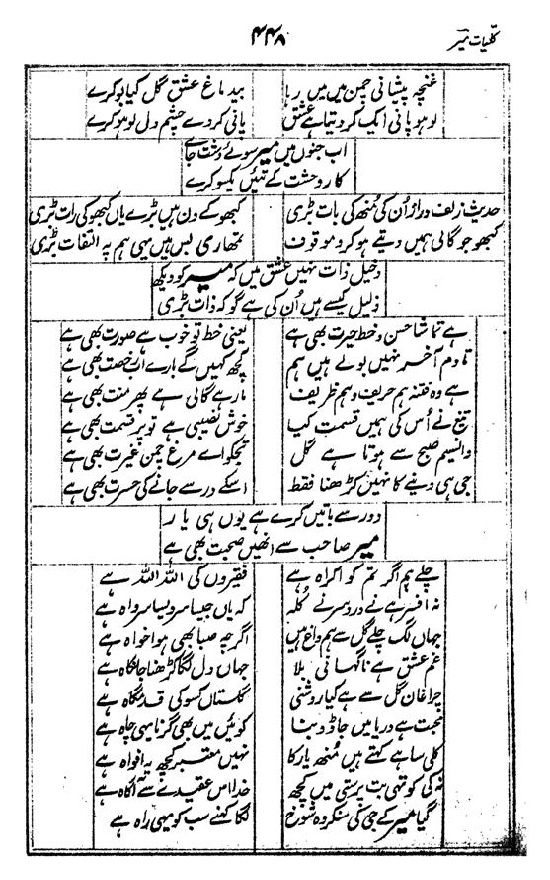 کلیات میر
۴۴۸
غنچہ پیشانی چمن میں میں رہا
بید ماغ عشق گل کیا بو کرے
لوہو پانی ایک کر دیتا ہے عشق
پانی کر دے چشم دل لوہو کرے
اب جنوں میں میر سوئے دشت جائے
کار وحشت کے تئیں یکسو کرے
حدیث زلف دراز اُن کی مُنھ کی بات بڑی
کبھو کے دن ہیں بڑے یاں کبھو کی رات بڑی
کبھو جو گالی ہمیں دیتے ہو کرو موقوف
تمھاری بس ہیں یہی ہم پہ التفات بڑی
دخیل ذات نہیں عشق میں کہ میر کو دیکھ
ذلیل کیسے ہیں اُن کی ہے گو کہ ذات بڑی
ہے تماشا حسن و خط حیرت بھی ہے
یعنی خط تو خوب ہے صورت بھی ہے
تا دم آخر نہیں بولے ہیں ہم
کچھ کہیں گے بارے اب رخصت بھی ہے
ہے وہ فتنہ ہم حریف و ہم ظریف
مار ہے گالی ہے پھر منت بھی ہے
تیغ نے اُس کی ہمیں قسمت کیا
خوش نصیبی ہے تو پر قسمت بھی ہے
وا نسیم صبح سے ہوتا ہے گل
تجکو اے مرغ چمن غیرت بھی ہے
جی ہی دینے کا نہیں کڑھنا فقط
اسکے در سے جانے کی حسرت بھی ہے
دور سے باتیں کرے ہے یوں ہی یار
میر صاحب سے انھیں صحبت بھی ہے
چلے ہم اگر تم کو اکراہ ہے
فقیروں کی اللہ اللہ ہے
نہ افسر ہے نے درد سر نے کُلہ
کہ یاں جیسا سر ویسا سرواہ ہے
جہاں لگ چلے گل سے ہم داغ ہیں
اگرچہ صبا بھی ہوا خواہ ہے
غم عشق ہے ناگہانی بلا
جہاں دل لگا کڑھنا جانکاہ ہے
چراغان گل سے ہے کیا روشنی
گلستاں کسو کی قدمگاہ ہے
محبت ہے دریا میں جا ڈوبنا
کوئیں میں بھی گرنا یہی چاہ ہے
کلی سا ہے کہتے ہیں مُنھ یار کا
نہیں معتبر کچھ یہ افواہ ہے
نہ کی کوتہی بت پرستی میں کچھ
خدا اس عقیدے سے آگاہ ہے
گیا میر کے جی کی سنکر وہ شوخ
لگا کہنے سب کو یہی راہ ہے